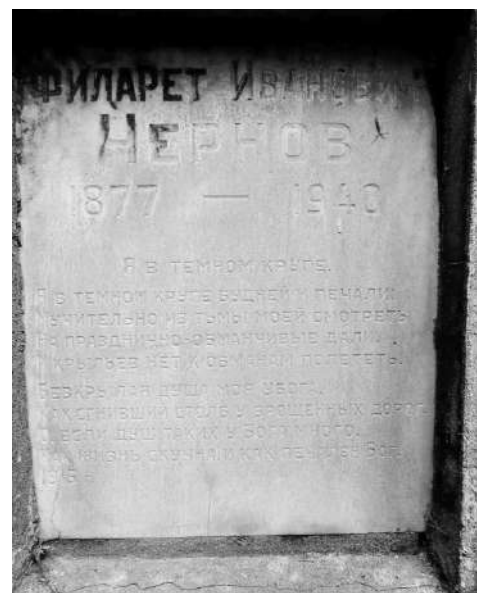 ФИЛАРЕТ ИВАНОВИЧ
ЧЕРНОВ
1877 — 1940
Я В ТЕМНОМ КРУГЕ.
Я В ТЕМНОМ КРУГЕ БУДНЕЙ И ПЕЧАЛИ.
МУЧИТЕЛЬНО ИЗ ТЬМЫ МОЕЙ СМОТРЕТЬ
НА ПРАЗДНИЧНО-ОБМАНЧИВЫЕ ДАЛИ.
И КРЫЛЬЕВ НЕТ К ОБМАНАМ ПОЛЕТЕТЬ.
БЕЗКРЫЛАЯ ДУША МОЯ УБОГА,
КАК СГНИВШИЙ СТОЛБ У БРОШЕННЫХ ДОРОГ.
И ЕСЛИ ДУШ ТАКИХ У БОГА МНОГО,
ЖИЗНЬ СКУЧНА И КАК ПЕЧАЛЕН БОГ